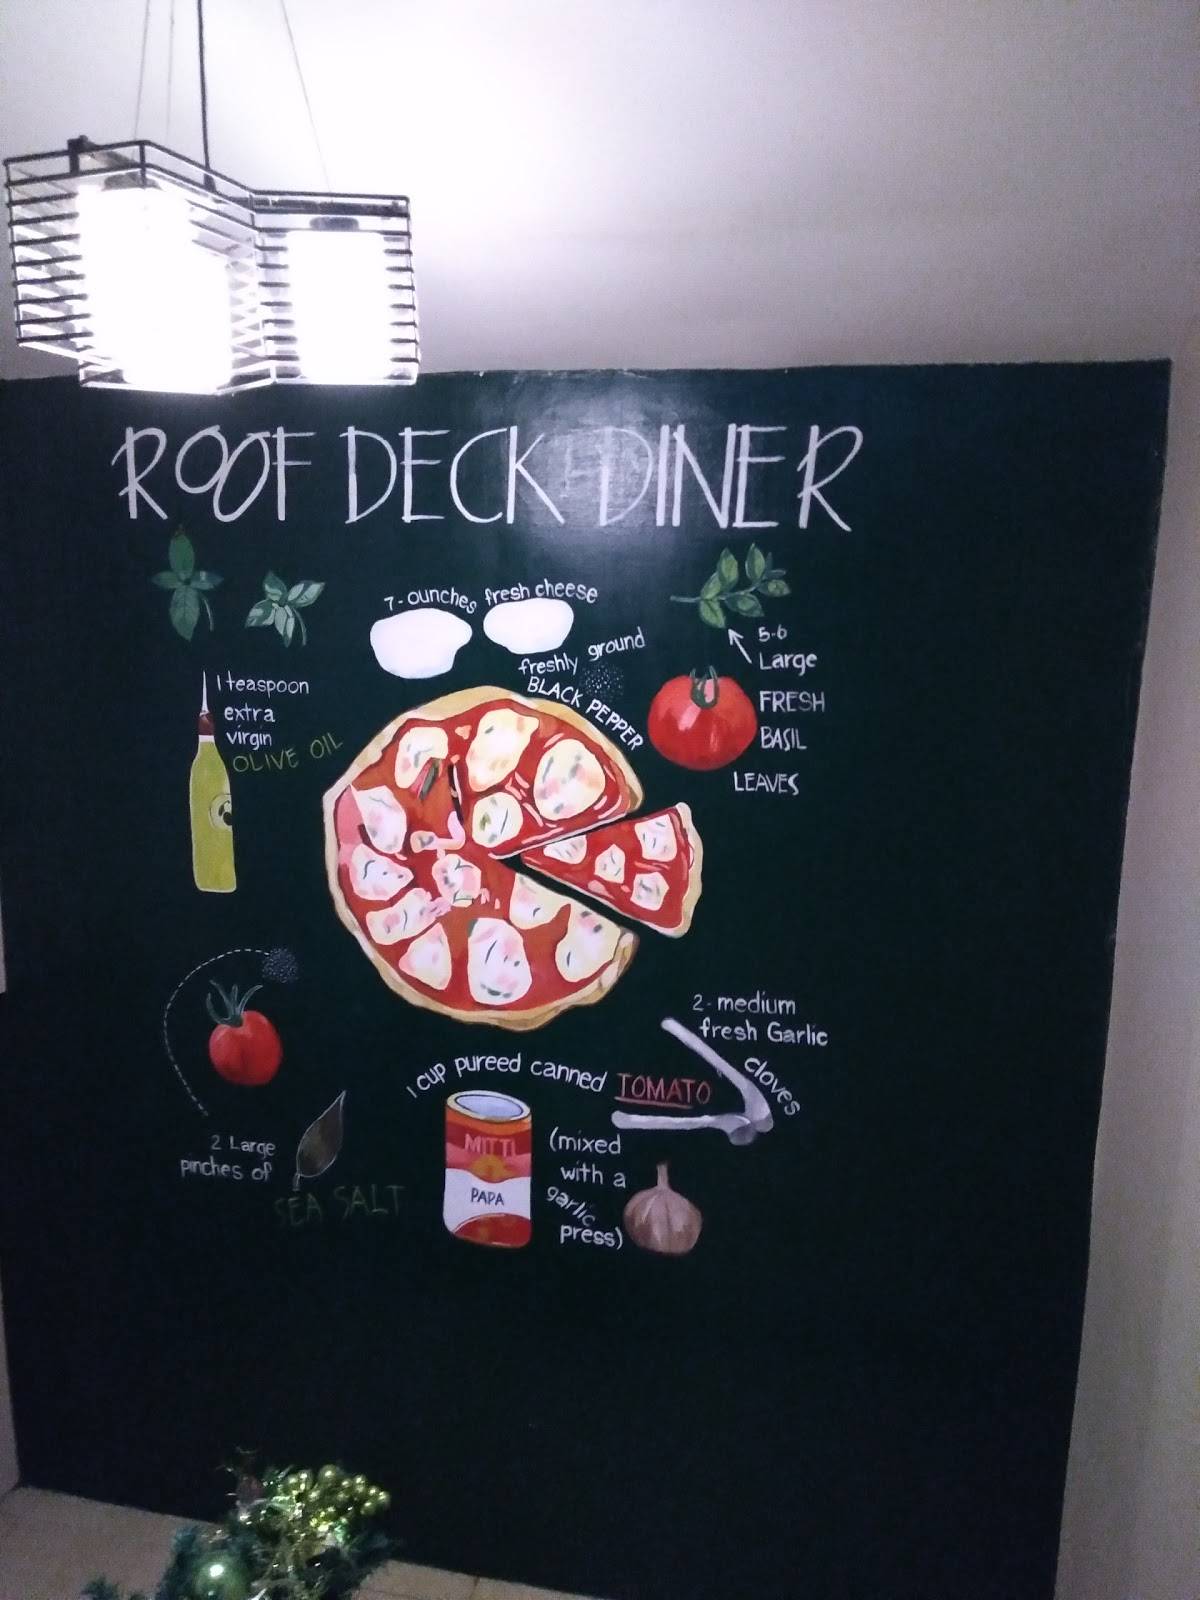 ROOF DECK DINER
7-ounches fresh cheese
freshly ground
BLACK PEPPER
5-6
Large
FRESH
BASIL
LEAVES
1 teaspoon
extra
virgin
OLIVE OIL
2-medium
fresh Garlic
cloves
1 cup pureed canned TOMATO
(mixed
with a
garlic
press)
MITTI
PAPA
2 Large
pinches of
SEA SALT